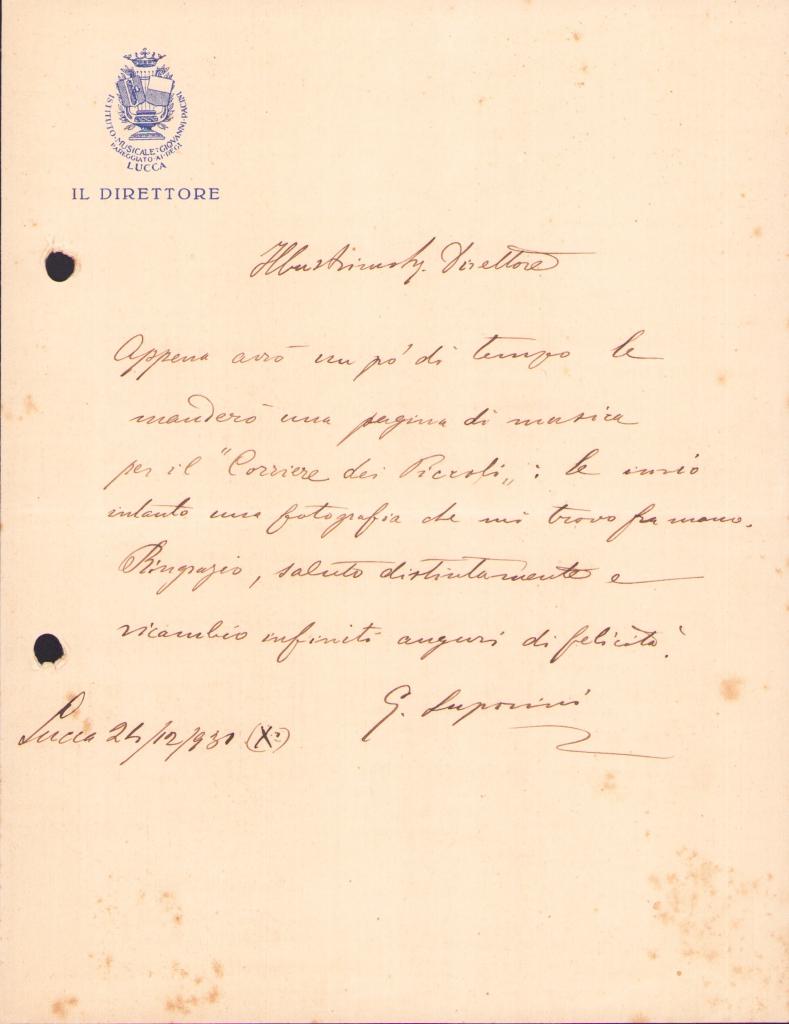 ISTITUTO·MUSICALE·GIOVANNI·PACINI
PAREGGIATO·AI·REGI
LUCCA
IL DIRETTORE
Direttore
Appena avrò un pó di tempo le
manderò una pagina di musica
per il "Corriere dei Piccoli„: le invio
intanto una fotografia che mi trovo fra mano.
Ringrazio, saluto distintamente e
ricambio infiniti auguri di felicità!
G. Luporini
Lucca 24/12/931 (X°)